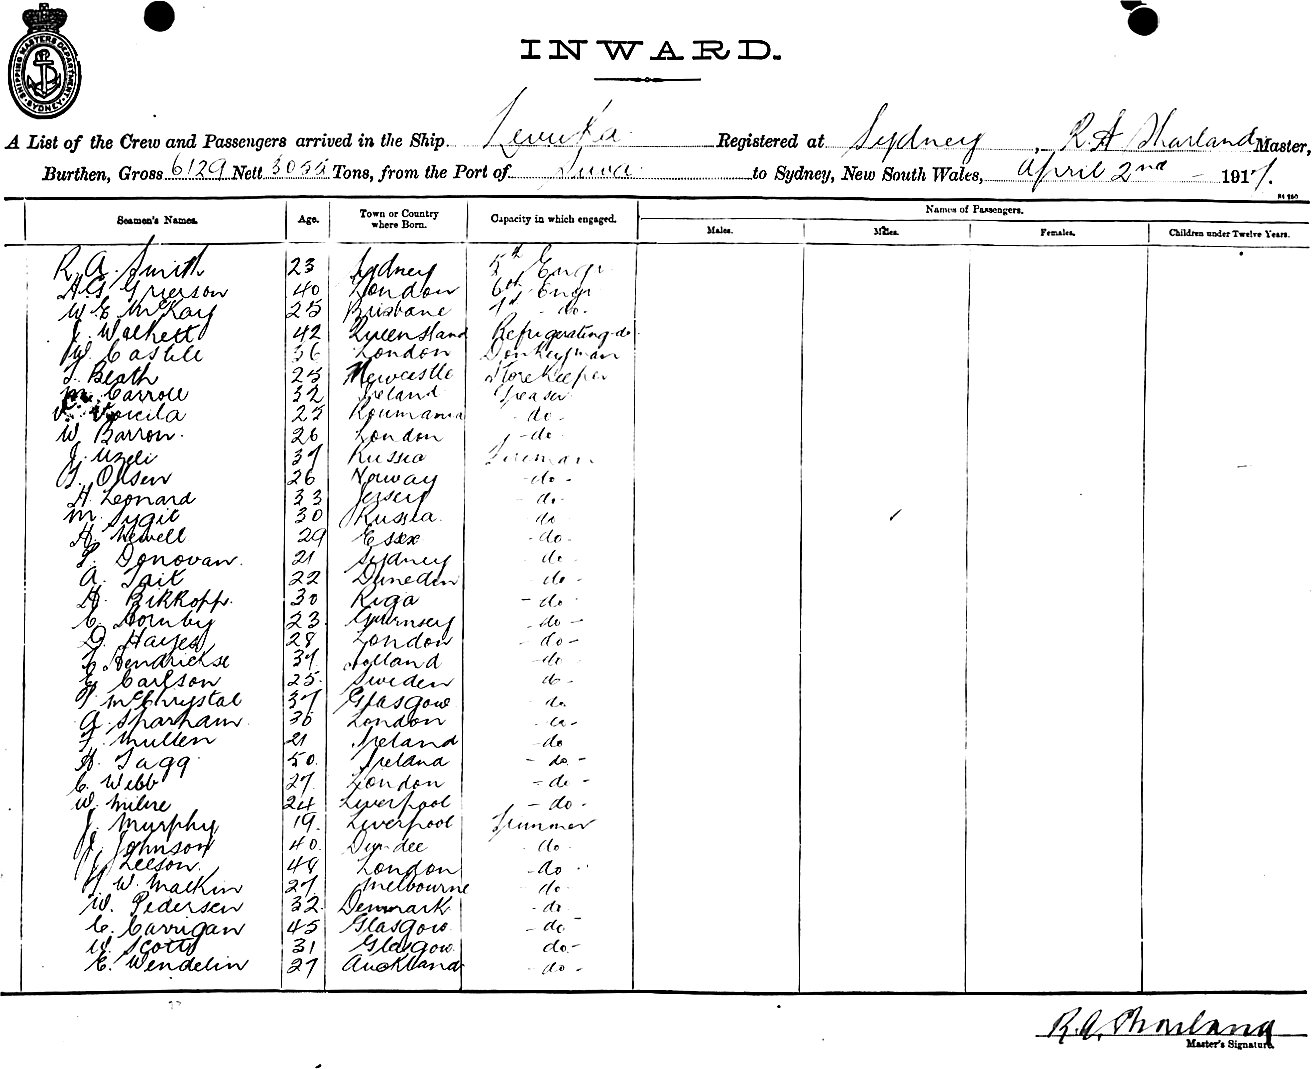 SHIPPING MASTERS DEPARTMENT SYDNEY
INWARD.
A List of the Crew and Passengers arrived in the Ship Levuka Registered at Sydney, R. A Sharland Master,
Burthen, Gross 6129 Nett Tons, from the Port of Suva to Sydney, New South Wales, April 2nd 1917.
Seamen's Names. Age. Town or Country where Born. Capacity in which engaged. Names of Passengers.
Males. Males. Females. Children under Twelve Years.
R. A. Smith 23 Sydney 5th Engr
A.G Grierson 40 London 6th Engr
W E McKay 25 Brisbane 7th do.
J. Walkett 42 Queensland Refrigerating do
W. Castle 36 London Donkeyman
Beath 25 Newcastle Storekeeper
M. Carroll 32 Ireland Greaser
V. Voicila 25 Roumania do
W. Barron. 26 London do
J. Uzeli 37 Russia Fireman
Olsen 26 Norway do
H. Leonard 33 Jersey do
M. Sygit 30 Russia. do
H. Newell 29 Essex do
Donovan. 21 Sydney do
A. Tait 22 Dunedin do
Bikkopp. 30 Riga do
C. Hornby 23 Guernsey do
D. Hayes 28 London do
Hendrickse 37 Holland do
E. Carlson 25. Sweden do
P. McChrystal 37 Glasgow do
A. Sparham 36 London do
F. Mullen 21 Ireland do
H. Tagg 50. Ireland do
C. Webb 27 London do
W. Milne 24 Liverpool do
J. Murphy 19. Liverpool Trimmer
J. Johnson 40. Dundee do
J. Leeson. 48 London do
W. Mackin 27 Melbourne do
W. Pedersen 32 Denmark do
C. Carrigan 45 Glasgow do
W. Scott 31 Glasgow. do
E. Wendelin 27 Auckland do
R. A. Sharland
Master's Signature.